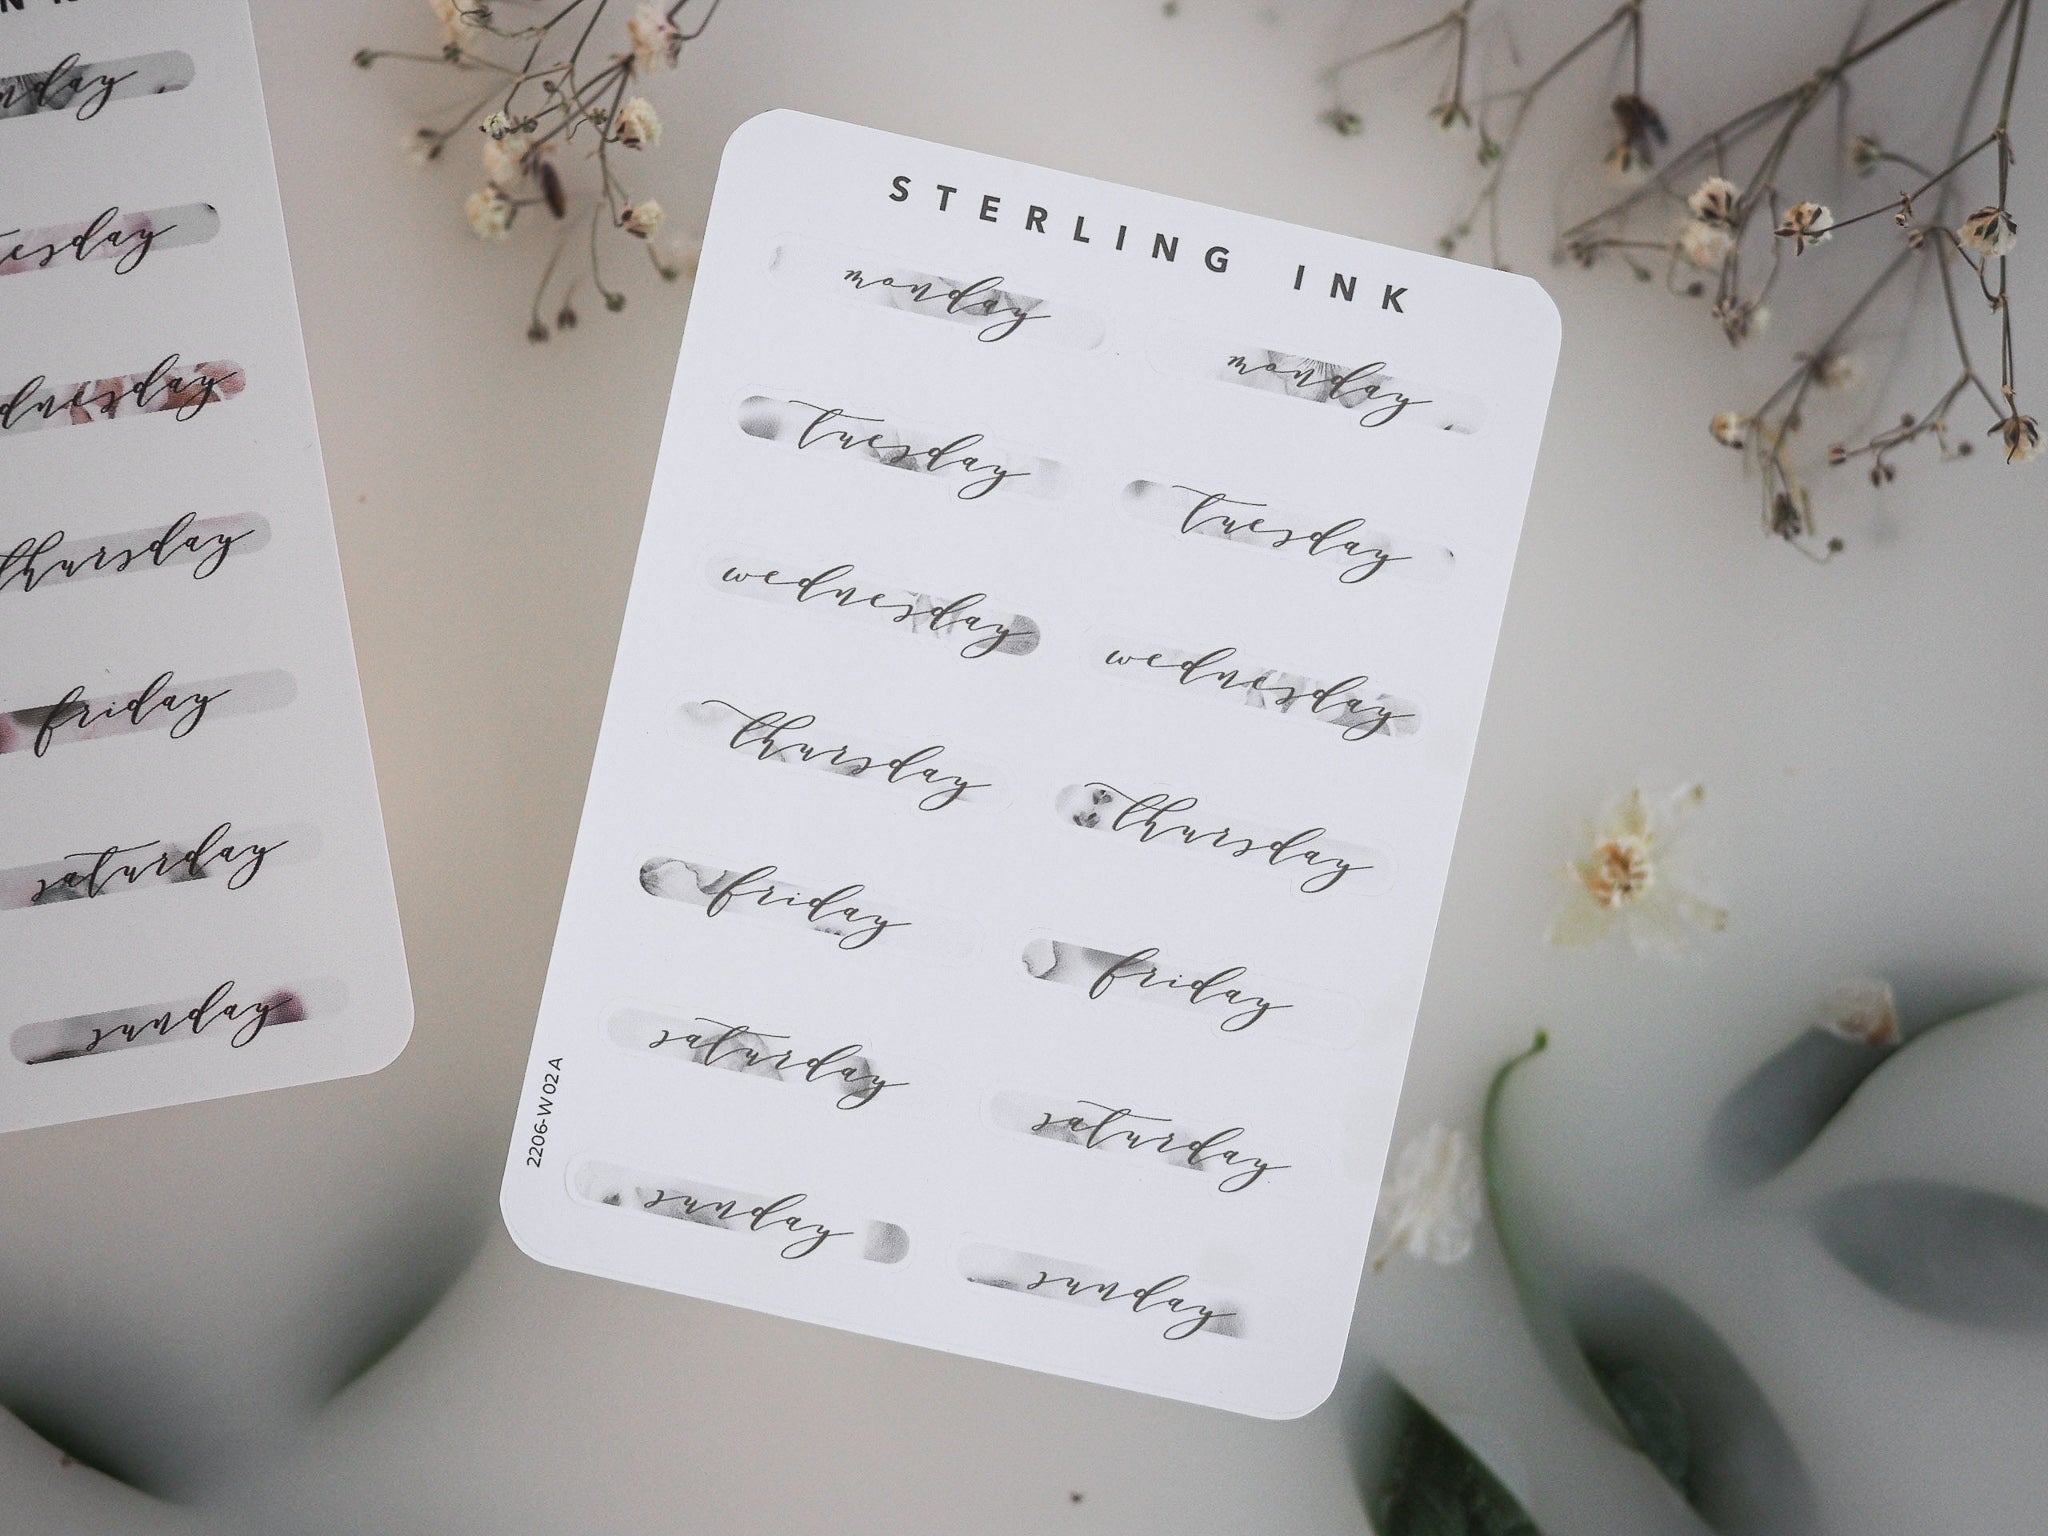 day
thursday
friday
saturday
sunday
STERLING INK
monday
monday
tuesday
tuesday
wednesday
wednesday
thursday
thursday
friday
friday
saturday
saturday
sunday
sunday
2206-W02A